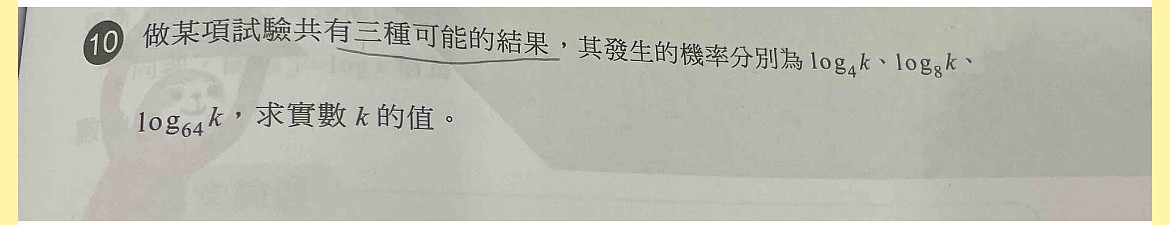 10 做某項試驗共有三種可能的結果，其發生的機率分別為 log₄k、log₈k、
log₆₄k，求實數 k 的值。